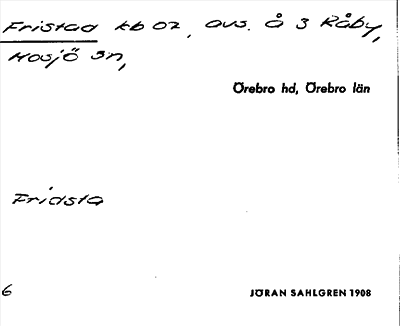 Fristad kb 02, avs. Å 3 Råby,
Mosjö sn,
Örebro hd, Örebro län
Fridsta
6
JÖRAN SAHLGREN 1908